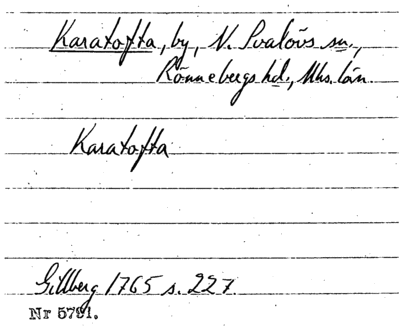 Karatofta, by, N. Svalövs sn.,
Rönnebergs hd., Mhs. län.
Karatofta
Gillberg 1765 s. 227.
Nr 5791.